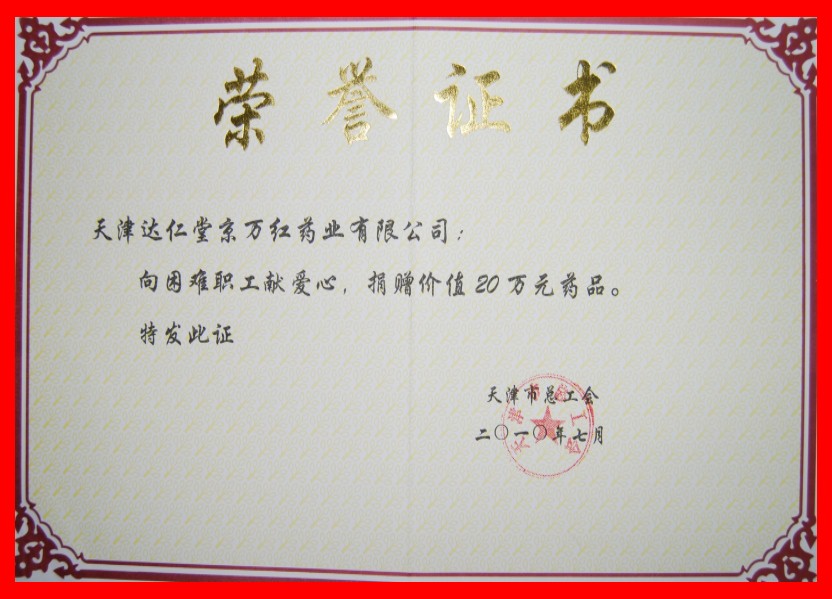 荣誉证书
天津达仁堂京万红药业有限公司：
向困难职工献爱心，捐赠价值20万元药品。
特发此证
天津市总工会
二〇一〇年七月